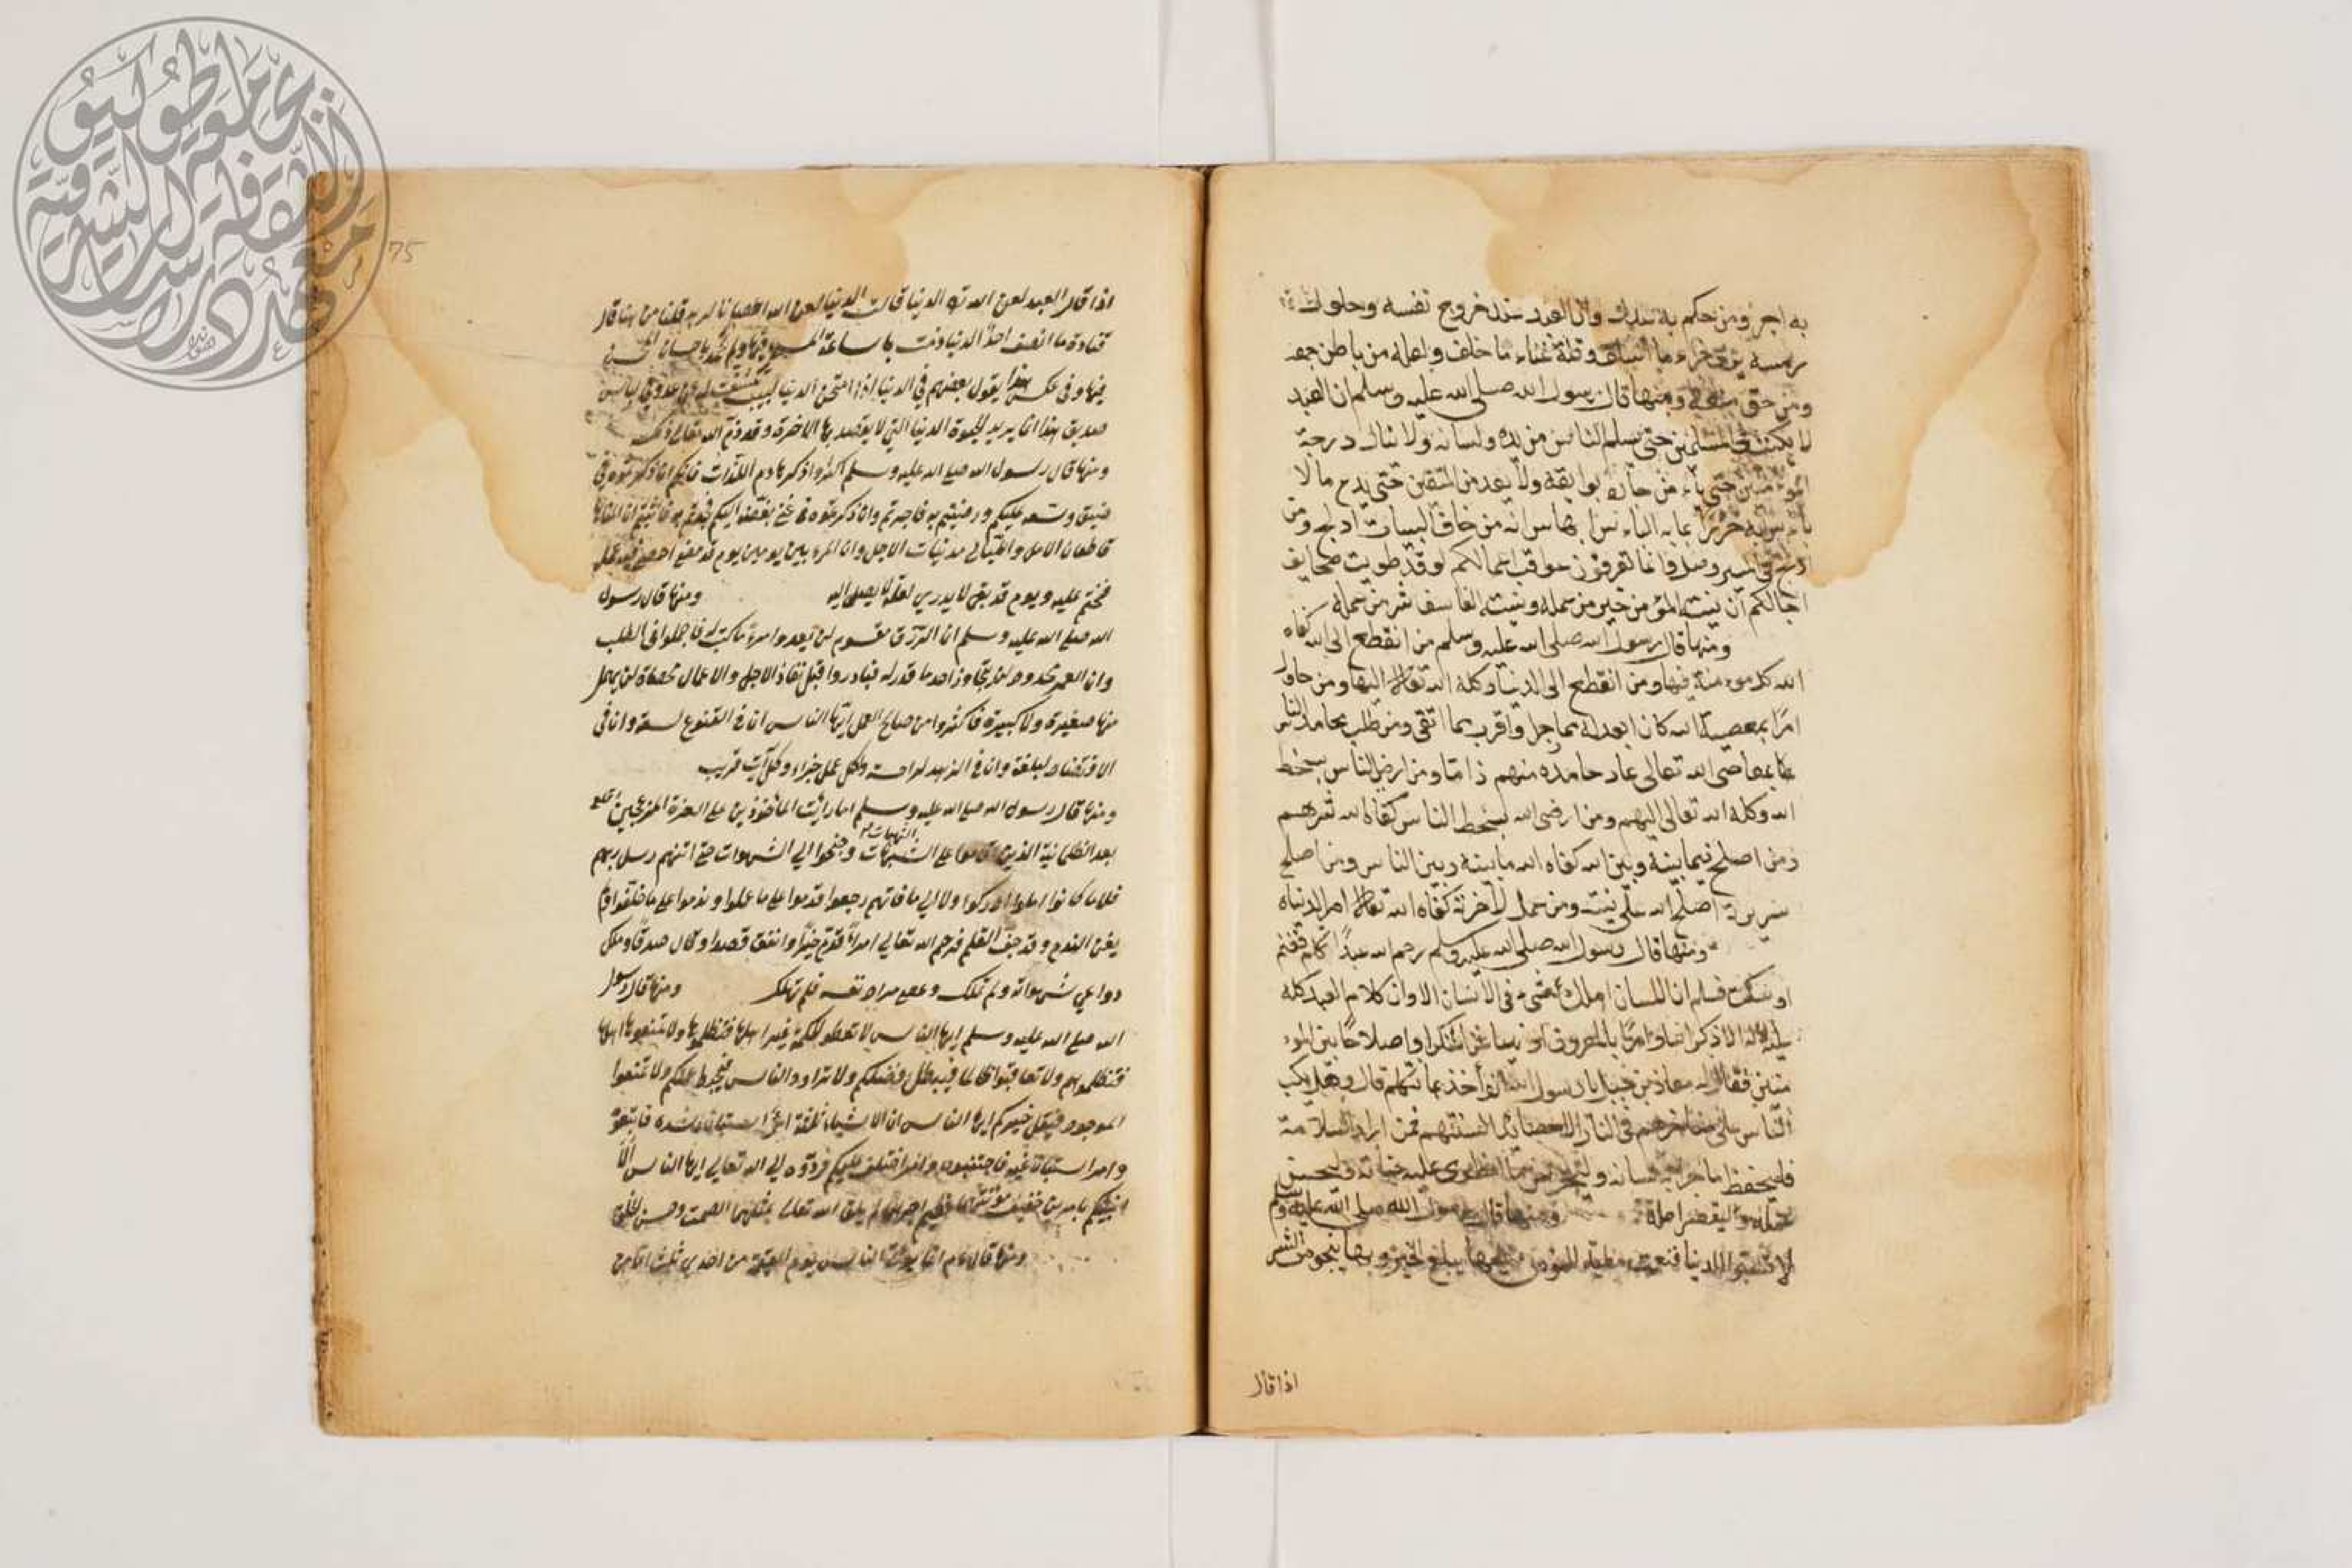 به اجر ومن حكم به وان العبد عند خروج نفسه وحلول
رمسه يرى جزاء ما اسلف وقلة غناء ما خلف ولعله من باطل جمعه
ومن حق منعه ومنها قال رسول الله صلى الله عليه وسلم ان العبد
لا يكتب في المسلمين حتى يسلم الناس من يده ولسانه ولا ينال درجة
المؤمنين حتى يأمن جاره بوايقه ولا يعد من المتقين حتى يدع ما لا
بأس به حذرا عما به البأس انه من خاف البيات ادلج ومن
ادلج في المسير وصل وانما تعرفون عواقب اعمالكم لو قد طويت صحايف
اجالكم ان نية المؤمن خير من عمله ونية الفاسق شر من عمله
ومنها قال رسول الله صلى الله عليه وسلم من انقطع الى الله كفاه
الله كل مونة فيها ومن انقطع الى الدنيا وكله الله تعالى اليها ومن حاول
امرا بمعصية الله كان ابعد له مما رجا واقرب مما اتقى ومن طلب محامد الناس
بمعاصي الله تعالى عاد حامده منهم ذاما ومن ارضى الناس بسخط
الله وكله الله تعالى اليهم ومن ارضى الله بسخط الناس كفاه الله شرهم
ومن اصلح فيما بينه وبين الله كفاه الله ما بينه وبين الناس ومن اصلح
سريرته اصلح الله علانيته ومن عمل لآخرته كفاه الله تعالى امر دنياه
ومنها قال رسول الله صلى الله عليه وسلم رحم الله عبدا تكلم فغنم
او سكت فسلم ان اللسان املك شيء في الانسان الا وان كلام العبد كله
عليه الا ذكر الله او امرا بالمعروف او نهيا عن المنكر او اصلاحا بين المؤ
منين فقال له معاذ بن جبل يا رسول الله انؤاخذ بما نتكلم قال وهل يكب
الناس على مناخرهم في النار الا حصايد السنتهم فمن اراد السلامة
فليحفظ ما جرى به لسانه وليحرس ما انطوى عليه جنانه وليحسن
عمله وليقصر امله ومنها قال رسول الله صلى الله عليه وسلم
لا تسبوا الدنيا فنعمت مطية المؤمن فعليها يبلغ الخير وبها ينجو من الشر
اذا قال
75
اذا قال العبد لعن الله الدنيا قالت الدنيا لعن الله اعصانا لربه قلنا من هنا قال
قتادة ما انصف احد الدنيا ذمت باساءة المسيء فيها ولم تحمد باحسان المحسن
فيها وفي عكس هذا يقول بعضهم في الدنيا اذا امتحن الدنيا لبيب تكشفت له عن عدو في لباس
صديق هذا انما يريد الحيوة الدنيا التي لا يقصد بها الاخرة وقد ذم الله تعالى ذلك
ومنها قال رسول الله صلى الله عليه وسلم اكثروا ذكر هادم اللذات فانكم ان ذكرتموه في
ضيق وسعه عليكم ورضيتم به فاجرتم وان ذكرتموه في غنى بغضه اليكم فجدتم به فاثبتم ان المنايا
قاطعات الامل والليالي مدنيات الاجل وان المرء بين يومين يوم قد مضى احصي فيه عمله
فختم عليه ويوم قد بقي لا يدري لعله لا يصل اليه ومنها قال رسول
الله صلى الله عليه وسلم ان الرزق مقسوم لن يعدو امرءا ما كتب له فاجملوا في الطلب
وان العمر محدود لن يجاوز احد ما قدر له فبادروا قبل نفاذ الاجل والاعمال محصاة لن يهمل
منها صغيرة ولا كبيرة فاكثروا من صالح العمل ايها الناس ان في القنوع لسعة وان في
الاقتصاد لبلغة وان في الزهد لراحة ولكل عمل جزاء وكل آت قريب
ومنها قال رسول الله صلى الله عليه وسلم اما رأيت المأخوذين على الغرة المزعجين
بعد الطمانية الذين اقاموا على الشبهات وجنحوا الى الشهوات حتى اتتهم رسل ربهم
فلا ما كانوا املوا ادركوا ولا الى ما فاتهم رجعوا قدموا على ما عملوا وندموا على ما خلفوا ولم
يغن الندم وقد جف القلم فرحم الله تعالى امرأ قدم خيرا وانفق قصدا وقال صدقا وملك
دواعي شهواته ولم تملكه وعصى مراد نفسه فلم تهلكه ومنها قال رسول
الله صلى الله عليه وسلم ايها الناس لا تعطوا الحكمة غير اهلها فتظلموها ولا تمنعوها اهلها
فتظلموهم ولا تعاقبوا ظالما فيبطل فضلكم ولا تراؤوا الناس فيحبط عملكم ولا تمنعوا
الموجود فيقل خيركم ايها الناس ان الاشياء ثلثة امر استبان رشده فاتبعوه
وامر استبان غيه فاجتنبوه وامر اختلف عليكم فردوه الى الله تعالى ايها الناس الا
انبئكم بامرين خفيف مؤنتهما عظيم اجرهما لم يلق الله تعالى بمثلهما الصمت وحسن الخلق
ومنها قال انما يؤتى الناس يوم القيمة من احدى ثلث اما من